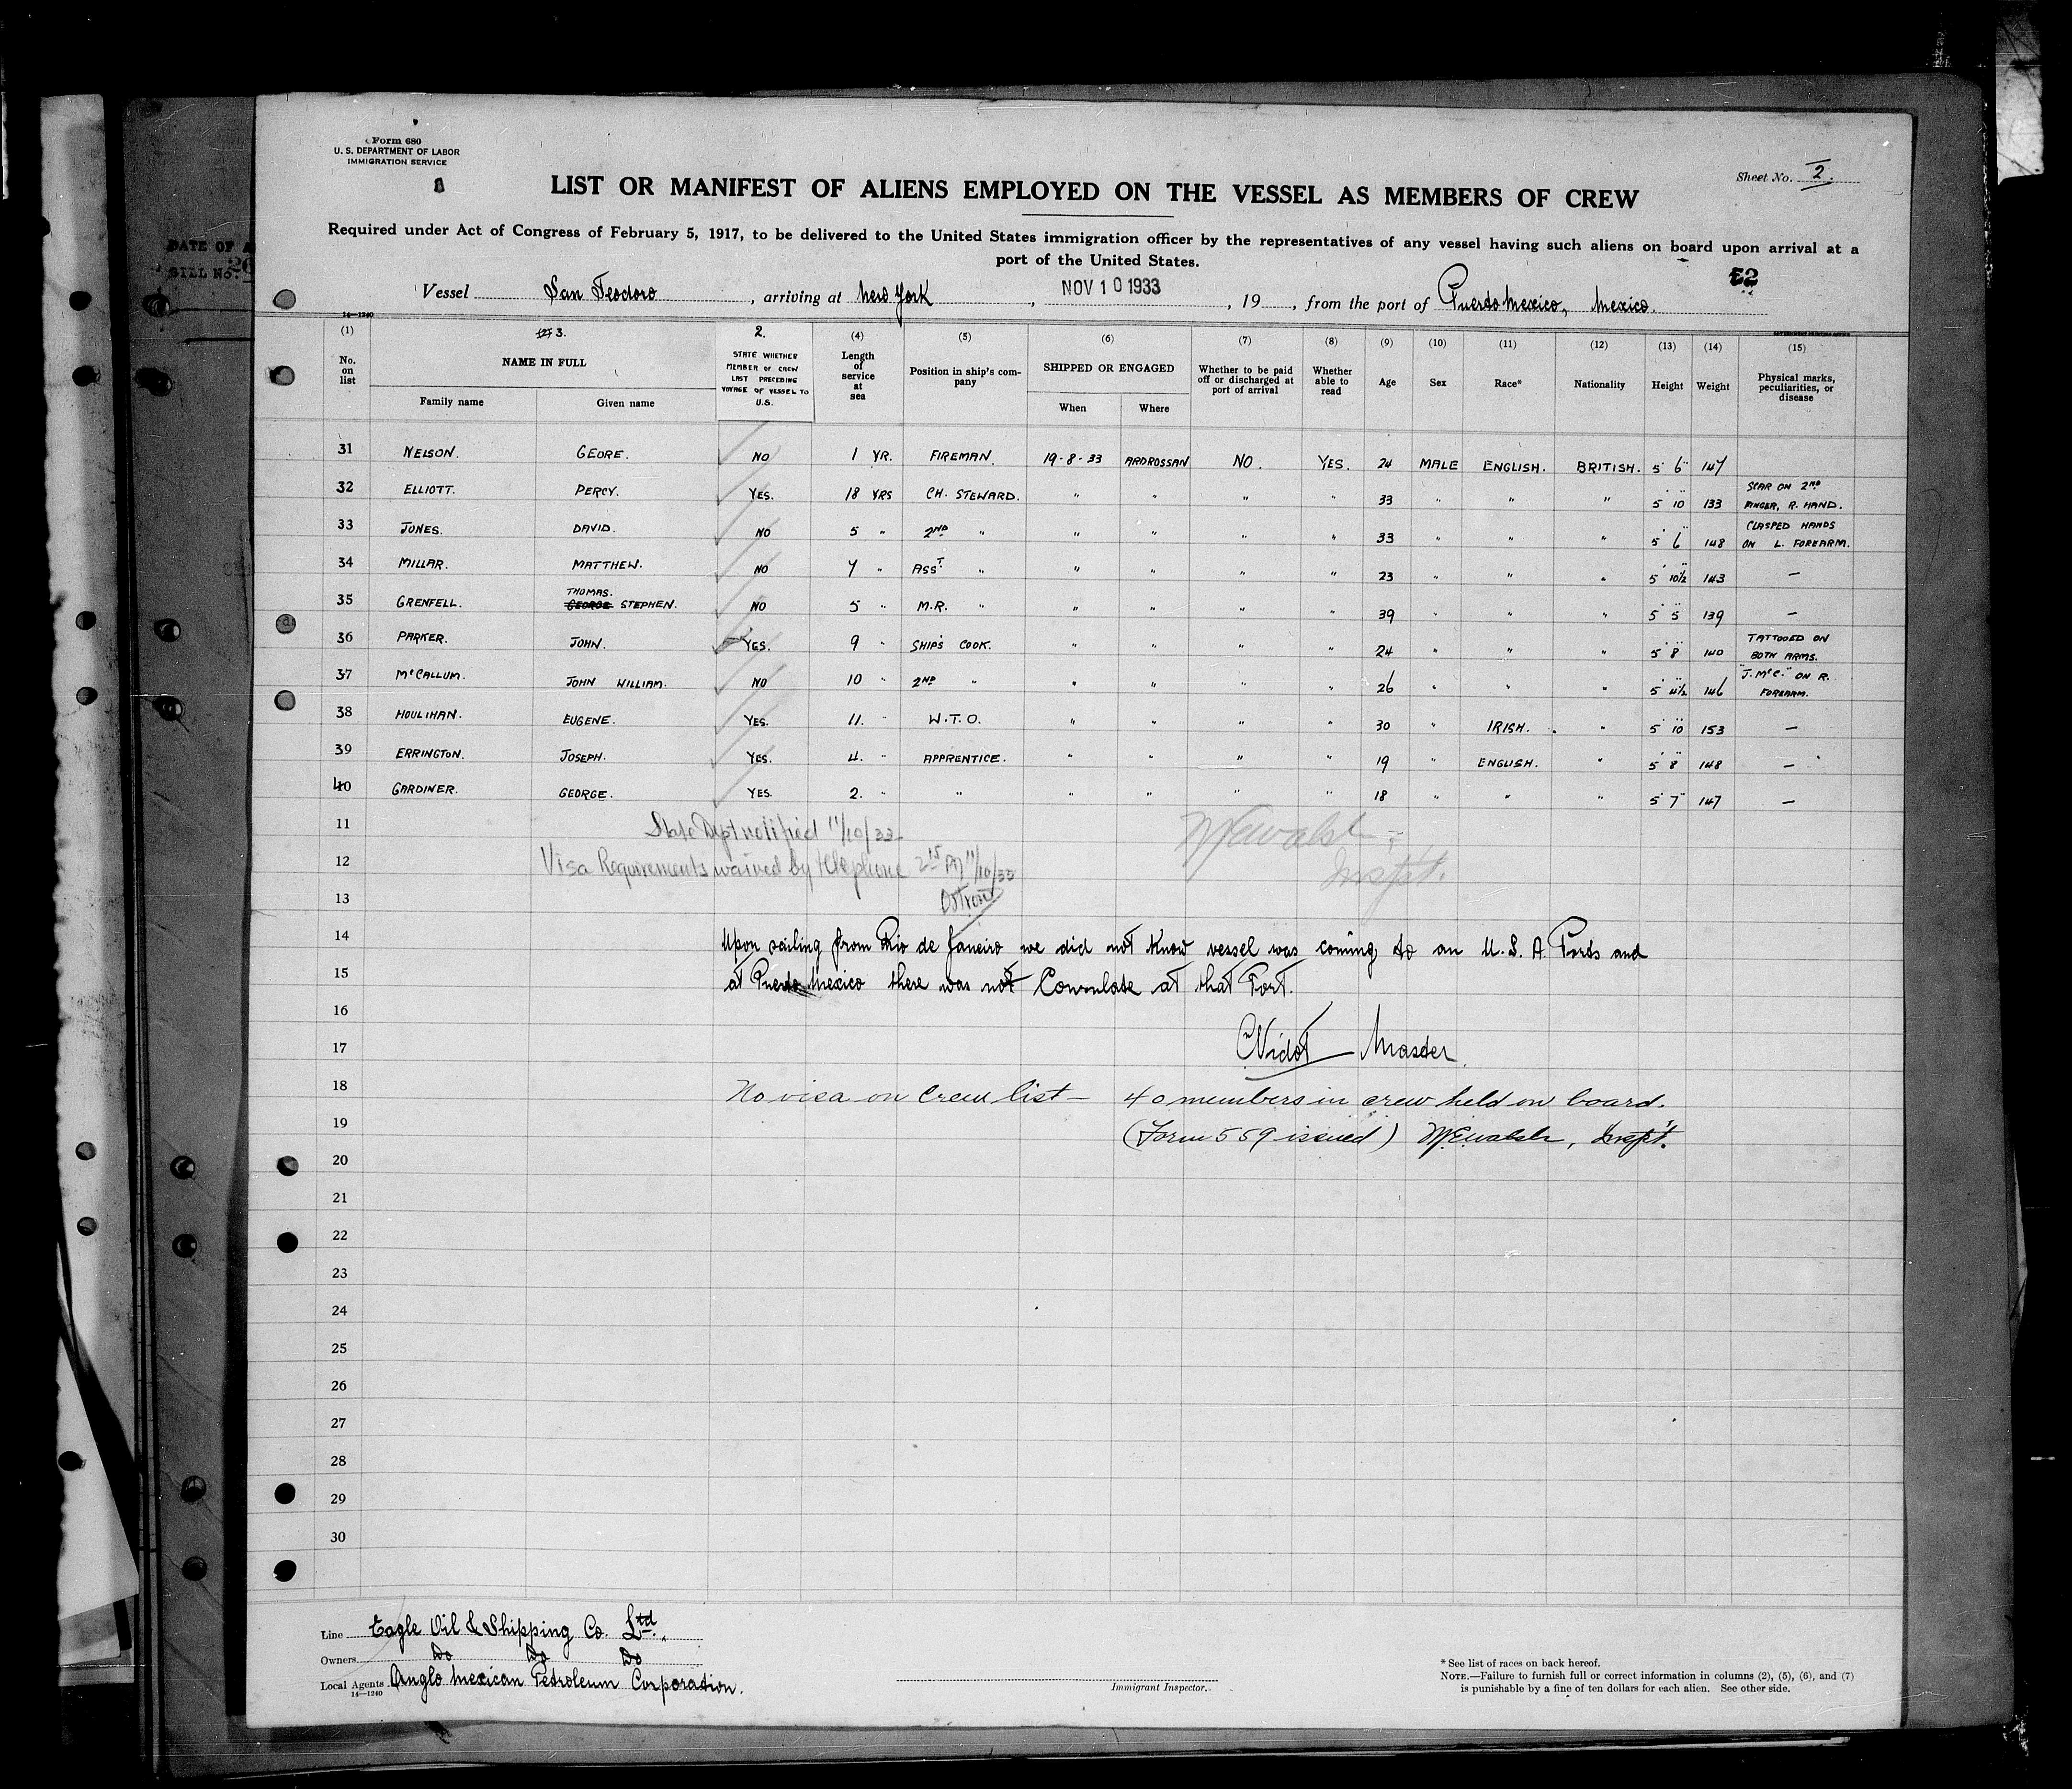 Form 680
U. S. DEPARTMENT OF LABOR
IMMIGRATION SERVICE
Sheet No. 2.
LIST OR MANIFEST OF ALIENS EMPLOYED ON THE VESSEL AS MEMBERS OF CREW
Required under Act of Congress of February 5, 1917, to be delivered to the United States immigration officer by the representatives of any vessel having such aliens on board upon arrival at a
port of the United States.
52
Vessel San Teodoro, arriving at New York, NOV 10 1933, 19, from the port of Puerto Mexico, Mexico.
14—1240
(1) (2) 3. 2. (4) (5) (6) (7) (8) (9) (10) (11) (12) (13) (14) (15)
No. on list NAME IN FULL STATE WHETHER MEMBER OF CREW LAST PRECEDING VOYAGE OF VESSEL TO U.S. Length of service at sea Position in ship's company SHIPPED OR ENGAGED Whether to be paid off or discharged at port of arrival Whether able to read Age Sex Race* Nationality Height Weight Physical marks, peculiarities, or disease
Family name Given name When Where
31 NELSON. GEORE. NO 1 YR. FIREMAN. 19-8-33 ARDROSSAN NO. YES. 24 MALE ENGLISH. BRITISH. 5' 6" 147
32 ELLIOTT. PERCY. YES. 18 YRS CH. STEWARD. " " " " 33 " " " 5' 10" 133 SCAR ON 2ND FINGER, R. HAND.
33 JONES. DAVID. NO 5 " 2ND " " " " " 33 " " " 5' 6" 148 CLASPED HANDS ON L. FOREARM.
34 MILLAR. MATTHEW. NO 7 " ASST. " " " " " 23 " " " 5' 10½" 143 —
35 GRENFELL. THOMAS. GEORGE STEPHEN. NO 5 " M.R. " " " " " 39 " " " 5' 5" 139 —
36 PARKER. JOHN. YES. 9 " SHIP'S COOK. " " " " 24 " " " 5' 8" 140 TATTOOED ON BOTH ARMS.
37 McCALLUM. JOHN WILLIAM. NO 10 " 2ND " " " " " 26 " " " 5' 4½" 146 "J. McC." ON R. FOREARM.
38 HOULIHAN. EUGENE. YES. 11. " W.T.O. " " " " 30 " IRISH. " 5' 10" 153 —
39 ERRINGTON. JOSEPH. YES. 4. " APPRENTICE. " " " " 19 " ENGLISH. " 5' 8" 148 —
40 GARDINER. GEORGE. YES. 2. " " " " " " 18 " " " 5' 7" 147 —
11 State Dept notified 11/10/33 M E Walsh
12 Visa Requirements waived by telephone 2 15 PM 11/10/33 Inspt.
13
14 Upon sailing from Rio de Janeiro we did not know vessel was coming to an U. S. A. Ports and
15 at Puerto Mexico there was not Consulate at that Port.
16
17 Master
18 No visa on Crew list— 40 members in crew held on board.
19 (Form 559 issued) M E Walsh, Inspt.
20
21
22
23
24
25
26
27
28
29
30
Line Eagle Oil & Shipping Co. Ltd.
Owners Do Do Do
Local Agents Anglo Mexican Petroleum Corporation.
14—1240
Immigrant Inspector.
* See list of races on back hereof.
NOTE.—Failure to furnish full or correct information in columns (2), (5), (6), and (7)
is punishable by a fine of ten dollars for each alien. See other side.